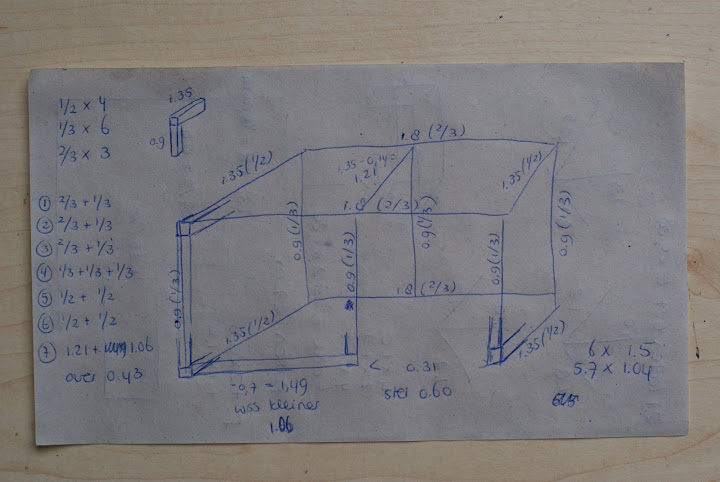 1/2 x 4
1/3 x 6
2/3 x 3
1.35
0.9
① 2/3 + 1/3
② 2/3 + 1/3
③ 2/3 + 1/3
④ 1/3 + 1/3 + 1/3
⑤ 1/2 + 1/2
⑥ 1/2 + 1/2
⑦ 1.21 + 1.06
over 0.43
1.35 (1/2)
1.8 (2/3)
1.35 - 0,14 =
1.21
1.35 (1/2)
1.8 (2/3)
0.9 (1/3)
0.9 (1/3)
0.9 (1/3)
0.9 (1/3)
0.9 (1/3)
0.9 (1/3)
1.8 (2/3)
1.35 (1/2)
1.35 (1/2)
-0,7 = 1,49
wss kleiner
1.06
< 0.31
stel 0.60
6 x 1.5
5.7 x 1.04